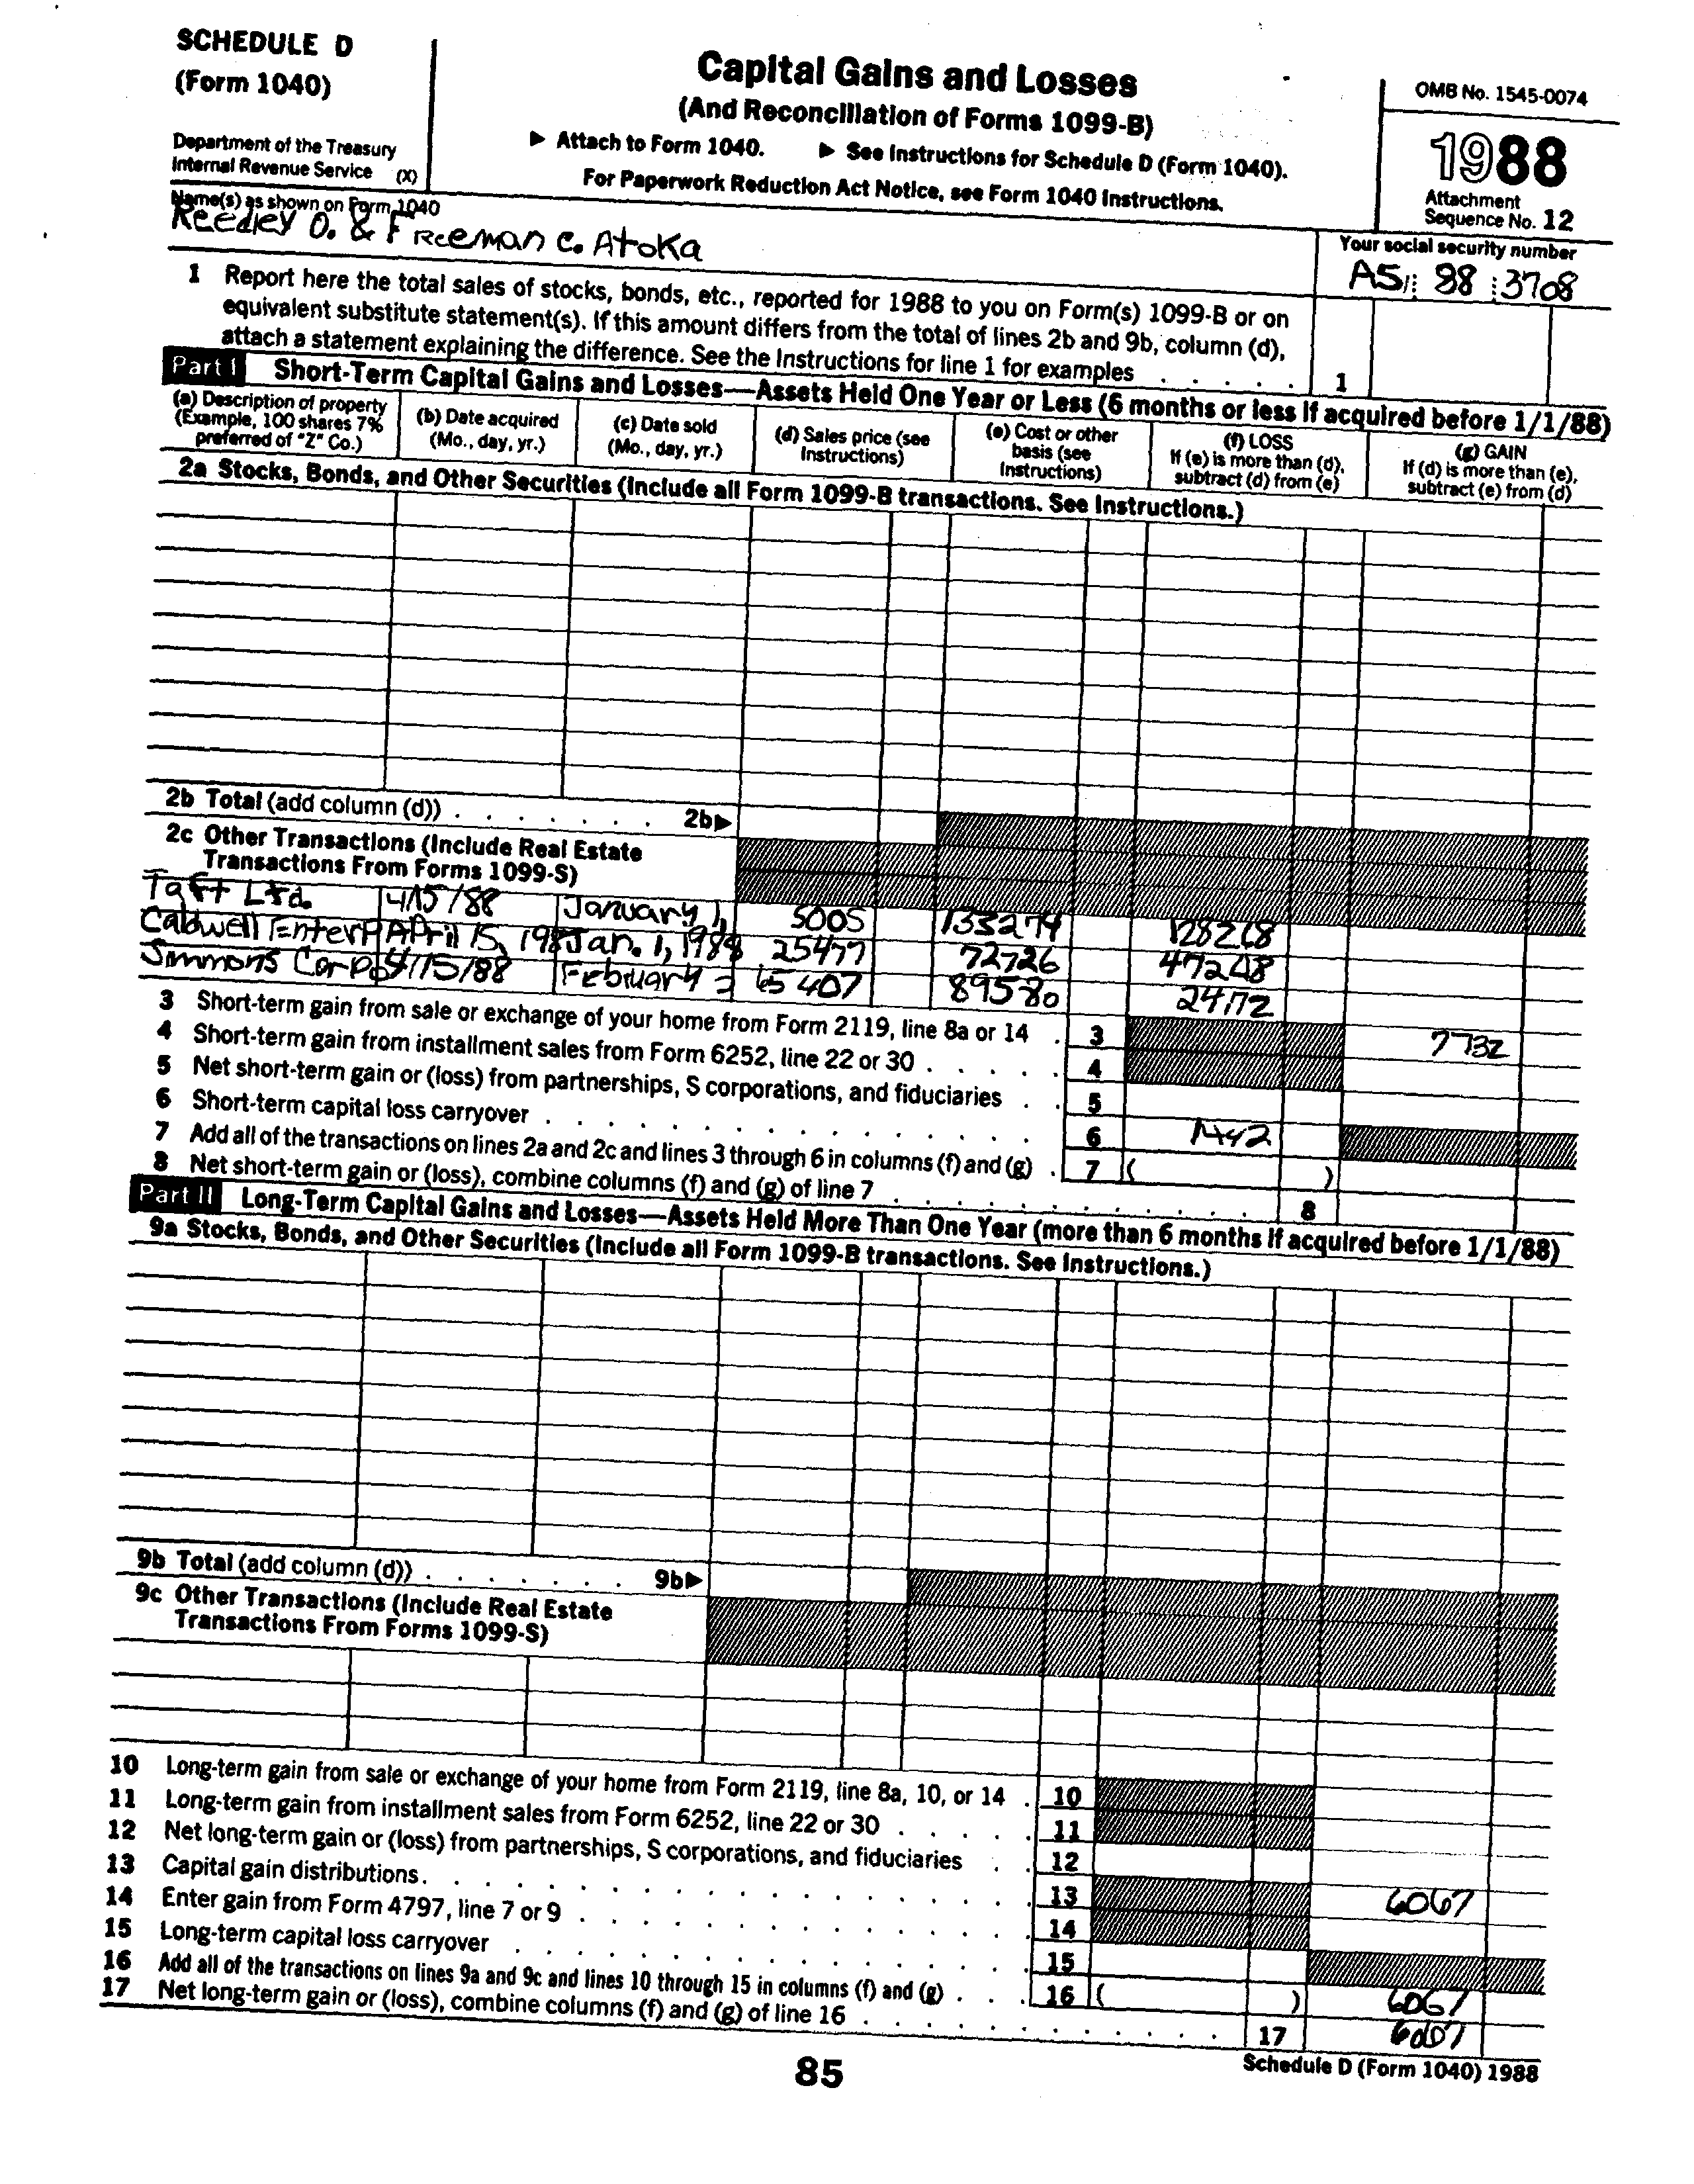 SCHEDULE D
(Form 1040)
Department of the Treasury
Internal Revenue Service (X)
Capital Gains and Losses
(And Reconciliation of Forms 1099-B)
▶ Attach to Form 1040. ▶ See Instructions for Schedule D (Form 1040).
For Paperwork Reduction Act Notice, see Form 1040 Instructions.
OMB No. 1545-0074
1988
Attachment
Sequence No. 12
Name(s) as shown on Form 1040
Reedley O. & Freeman C. Atoka
Your social security number
AS 88 3708
1 Report here the total sales of stocks, bonds, etc., reported for 1988 to you on Form(s) 1099-B or on
equivalent substitute statement(s). If this amount differs from the total of lines 2b and 9b, column (d),
attach a statement explaining the difference. See the Instructions for line 1 for examples . . . . . 1
Part I Short-Term Capital Gains and Losses—Assets Held One Year or Less (6 months or less if acquired before 1/1/88)
(a) Description of property
(Example, 100 shares 7%
preferred of "Z" Co.)
(b) Date acquired
(Mo., day, yr.)
(c) Date sold
(Mo., day, yr.)
(d) Sales price (see
Instructions)
(e) Cost or other
basis (see
Instructions)
(f) LOSS
If (e) is more than (d),
subtract (d) from (e)
(g) GAIN
If (d) is more than (e),
subtract (e) from (d)
2a Stocks, Bonds, and Other Securities (Include all Form 1099-B transactions. See Instructions.)
2b Total (add column (d)) . . . . . . . 2b▶
2c Other Transactions (Include Real Estate
Transactions From Forms 1099-S)
Taft Ltd. 4/15/88 January 1, 5005 133274 128268
Caldwell Enterp April 15, 198 Jan. 1, 1988 25477 72726 47248
Simmons Corpo 4/15/88 February 65407 89580 24172
3 Short-term gain from sale or exchange of your home from Form 2119, line 8a or 14 . 3 7732
4 Short-term gain from installment sales from Form 6252, line 22 or 30 . . . . . 4
5 Net short-term gain or (loss) from partnerships, S corporations, and fiduciaries . . 5
6 Short-term capital loss carryover . . . . . . . . . . . . . . . . 6 1442
7 Add all of the transactions on lines 2a and 2c and lines 3 through 6 in columns (f) and (g) . 7 ( )
8 Net short-term gain or (loss), combine columns (f) and (g) of line 7 . . . . . . . . . . . . 8
Part II Long-Term Capital Gains and Losses—Assets Held More Than One Year (more than 6 months if acquired before 1/1/88)
9a Stocks, Bonds, and Other Securities (Include all Form 1099-B transactions. See Instructions.)
9b Total (add column (d)) . . . . . . . 9b▶
9c Other Transactions (Include Real Estate
Transactions From Forms 1099-S)
10 Long-term gain from sale or exchange of your home from Form 2119, line 8a, 10, or 14 . 10
11 Long-term gain from installment sales from Form 6252, line 22 or 30 . . . . . 11
12 Net long-term gain or (loss) from partnerships, S corporations, and fiduciaries . . 12
13 Capital gain distributions . . . . . . . . . . . . . . . . . . . 13 6067
14 Enter gain from Form 4797, line 7 or 9 . . . . . . . . . . . . . . . 14
15 Long-term capital loss carryover . . . . . . . . . . . . . . . . . 15
16 Add all of the transactions on lines 9a and 9c and lines 10 through 15 in columns (f) and (g) . . . 16 ( ) 6067
17 Net long-term gain or (loss), combine columns (f) and (g) of line 16 . . . . . . . . . . . . 17 6067
85
Schedule D (Form 1040) 1988